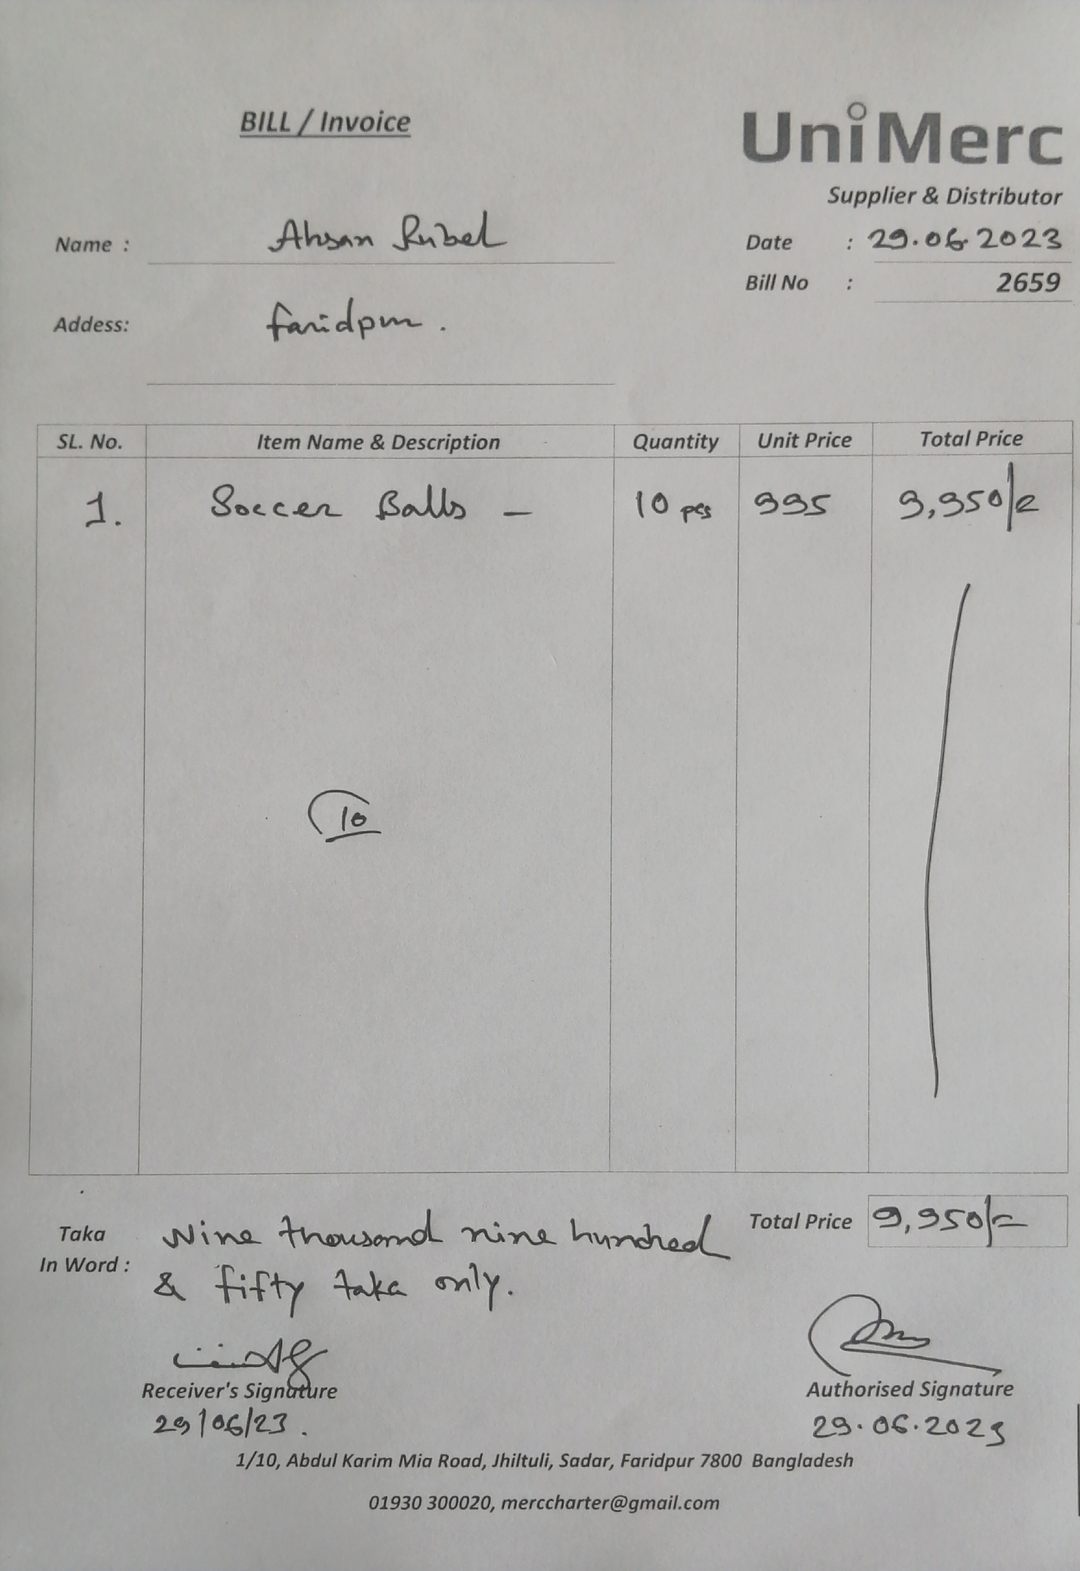 BILL / Invoice
UniMerc
Supplier & Distributor
Name : Ahsan Rubel
Date : 29.06.2023
Bill No : 2659
Addess: Faridpur.
SL. No. Item Name & Description Quantity Unit Price Total Price
1. Soccer Balls — 10 pcs 995 9,950/=
10
Taka In Word : Nine thousand nine hundred
& fifty taka only.
Total Price 9,950/=
Receiver's Signature
29/06/23.
Authorised Signature
29.06.2023
1/10, Abdul Karim Mia Road, Jhiltuli, Sadar, Faridpur 7800 Bangladesh
01930 300020, merccharter@gmail.com